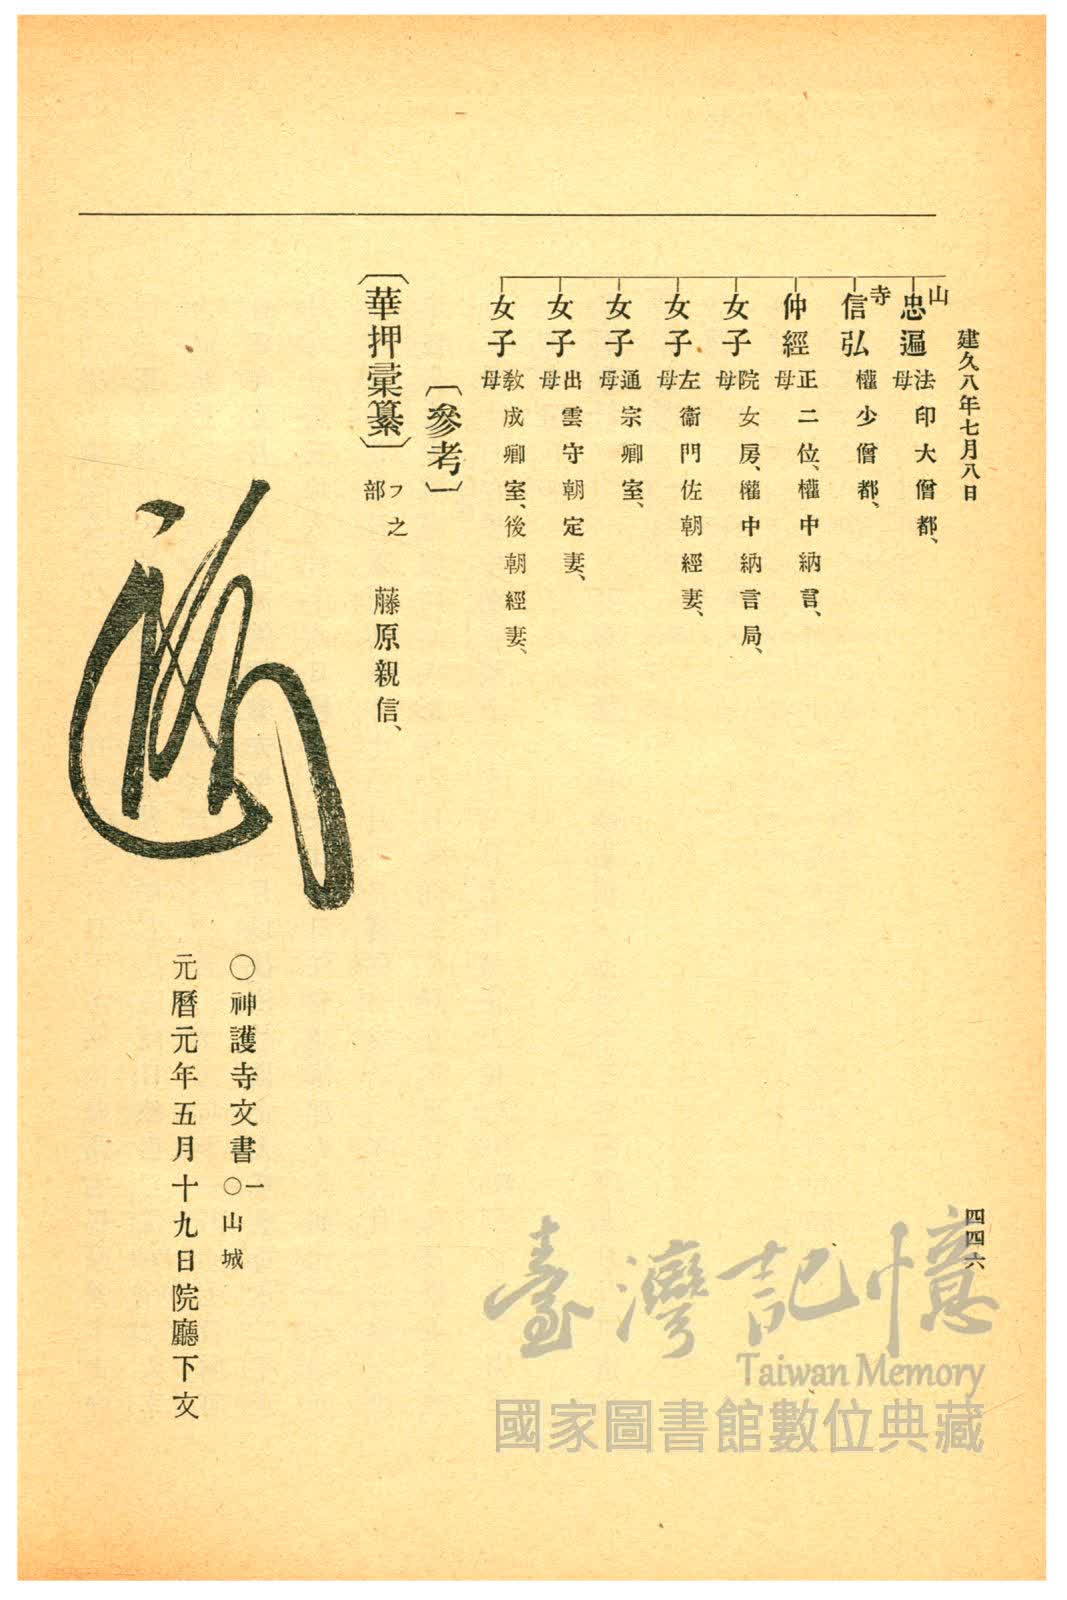 建久八年七月八日
四四六
山
忠遍 法印大僧都、
母
寺
信弘 權少僧都、
仲經 正二位、權中納言、
母
女子 院女房、權中納言局、
母
女子 左衞門佐朝經妻、
母
女子 通宗卿室、
母
女子 出雲守朝定妻、
母
女子 敎成卿室、後朝經妻、
母
〔參考〕
〔華押彙纂〕 フ之部 藤原親信、
○神護寺文書 一 ○山城
元曆元年五月十九日院廳下文
臺灣記憶
Taiwan Memory
國家圖書館數位典藏